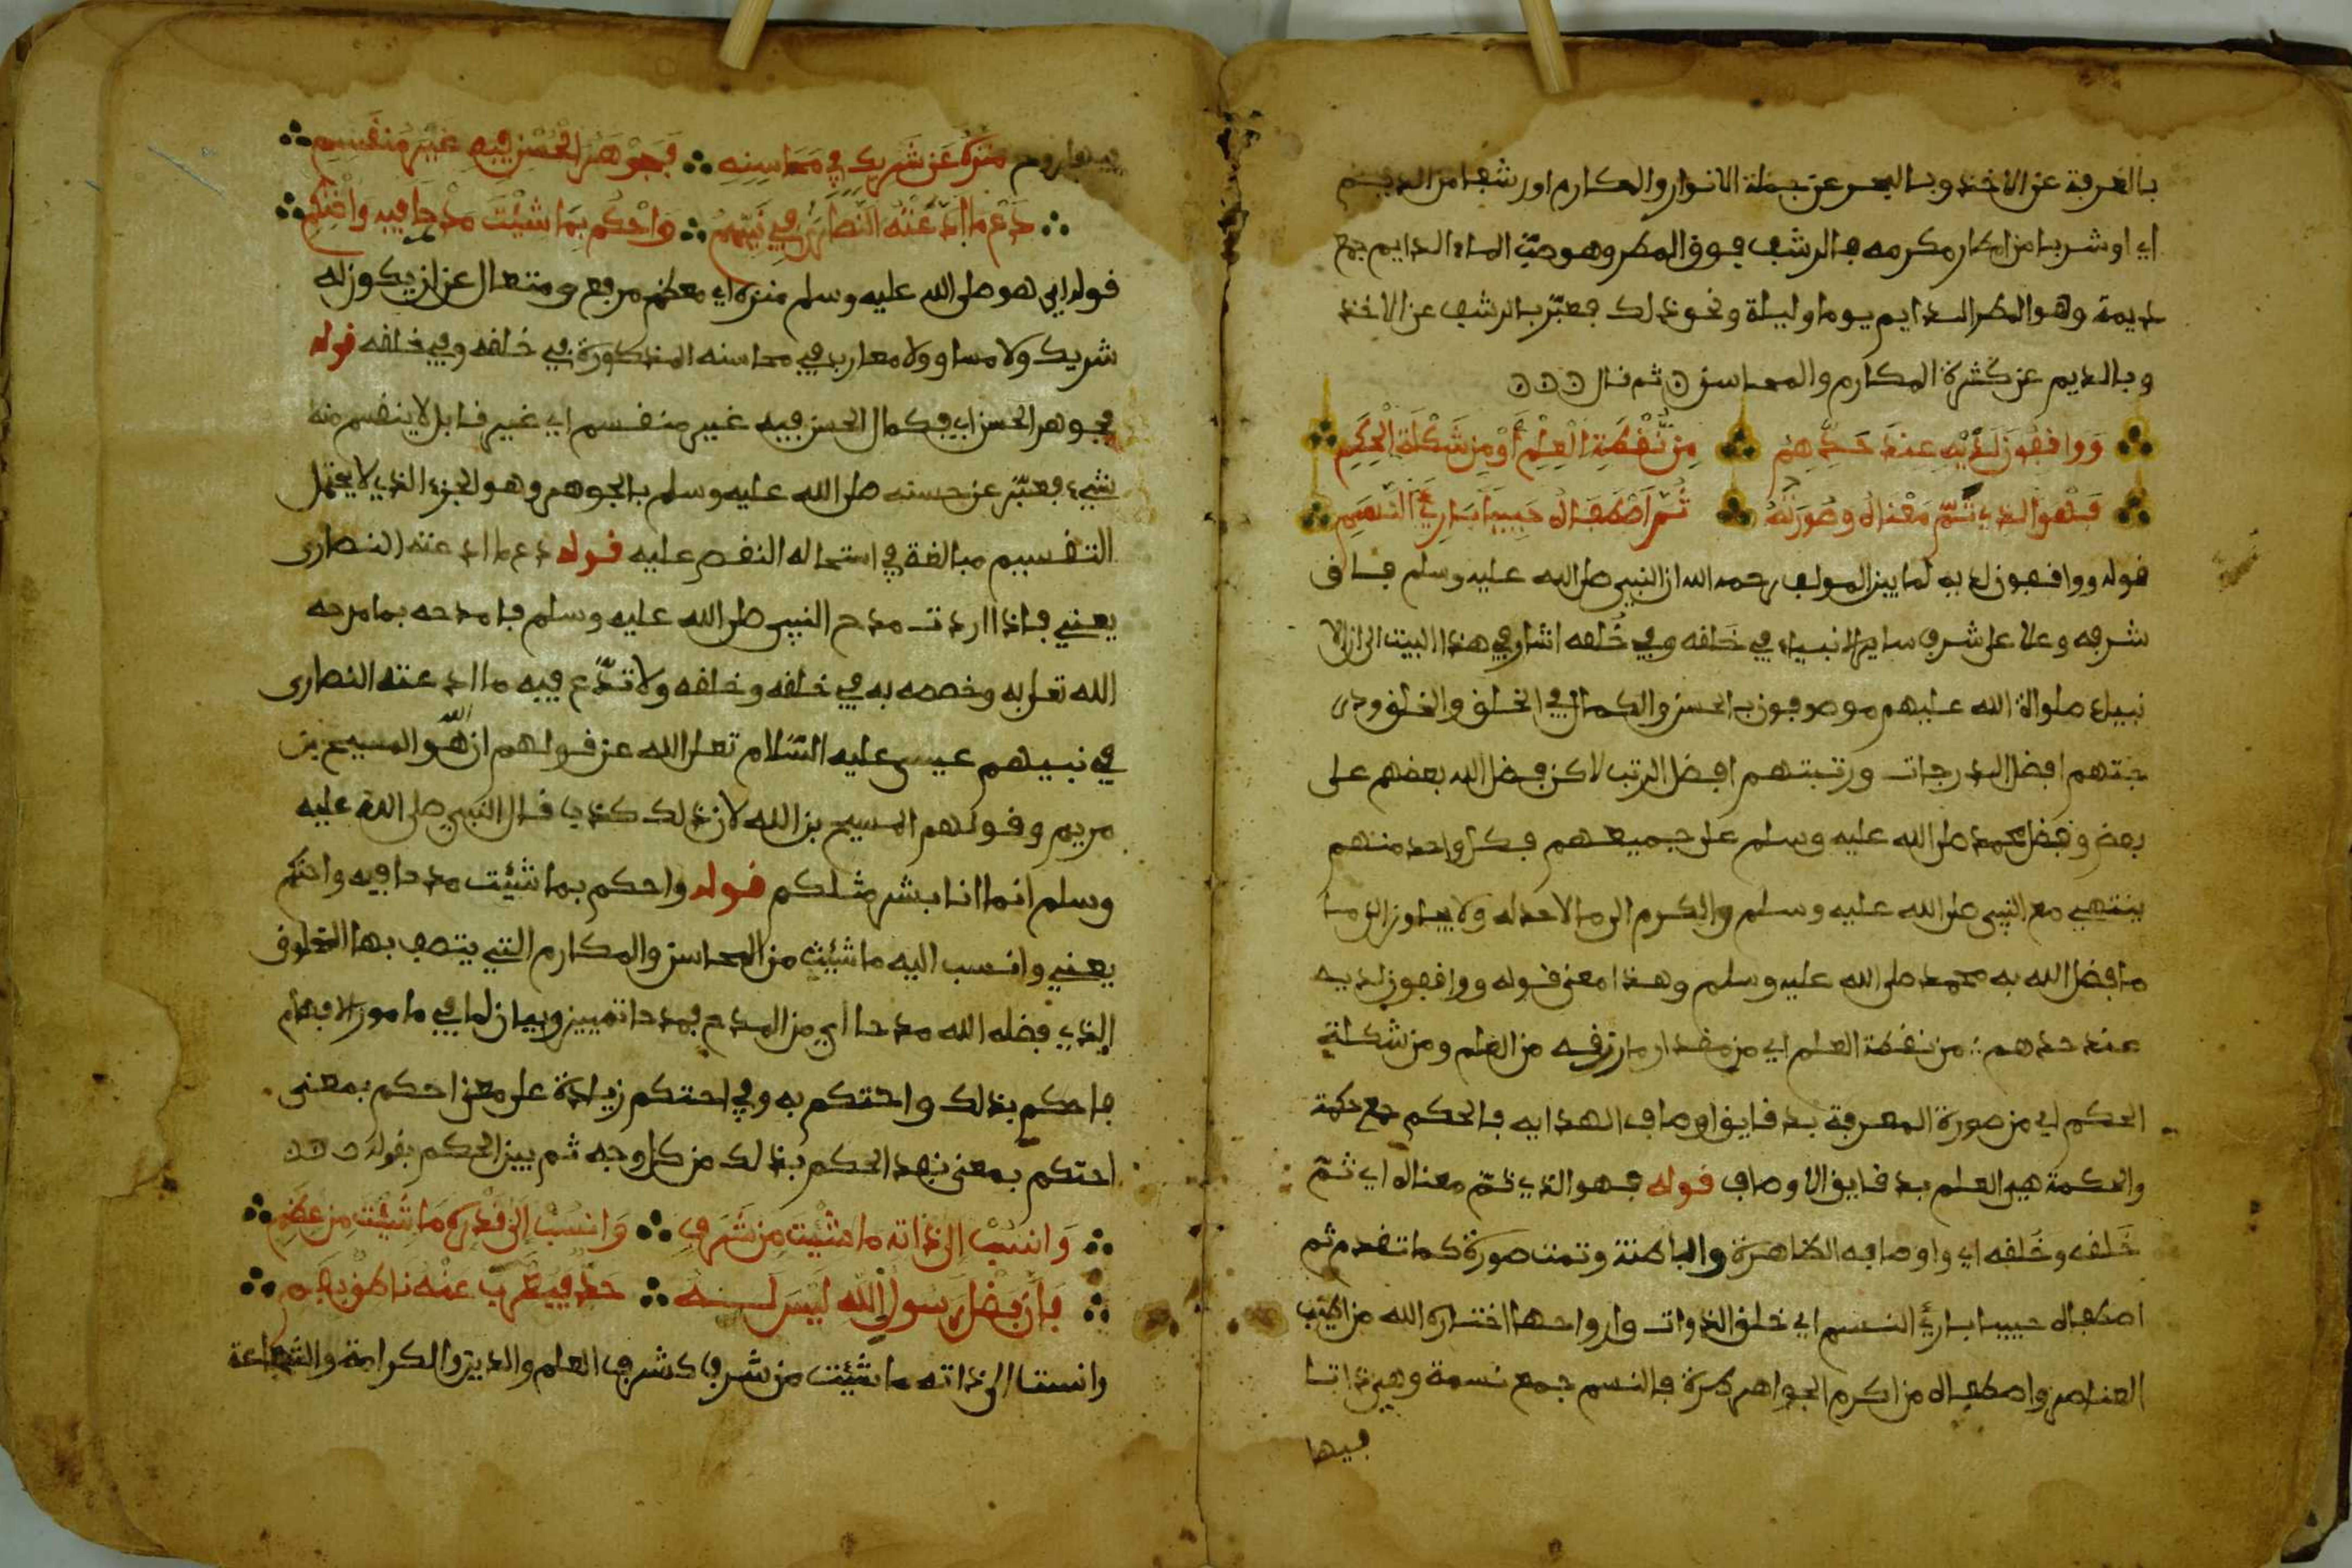 بالغرفة عن الاخذ وبالبحر عن جملة الانوار والمكارم اورشفا من الديم
اي اوشربا من امطار مكرمه فالرشف فوق المطر وهو صبّ الماء الدايم جمع
ديمة وهو المطر الدايم يوما وليلة ونحو ذلك فعبّر بالرشف عن الاخذ
وبالديم عن كثرة المكارم والمحاسن ثم قال
وَوَاقِفُونَ لَدَيْهِ عِنْدَ حَدِّهِمْ مِنْ نُّقْطَةِ الْعِلْمِ أَوْ مِنْ شَكْلَةِ الْحِكَمِ
فَهْوَ الذِي تَمَّ مَعْنَاهُ وصُورَتُهُ ثُمَّ اصْطَفَاهُ حَبِيبًا بَارِئُ النَّسَمِ
قوله وواقفون لديه لما بين المولف رحمه الله ان النبي صلى الله عليه وسلم فاق
شرفه وعلا على شرف ساير الانبياء في خَلقه وفي خُلقه اشار في هذا البيت الى ان الا
نبياء صلواة الله عليهم موصوفون بالحسن والكمال في الخلق والخلق ودر
جتهم افضل الدرجات ورتبتهم افضل الرتب لاكن فضل الله بعضهم على
بعض وفضل محمد صلى الله عليه وسلم على جميعهم فكل واحد منهم
ينتهي مع النبي صلى الله عليه وسلم والكرم الى ما لا حد له ولا يجاوز الى ما
ما فضل الله به محمد صلى الله عليه وسلم وهذا معنى قوله وواقفون لديه
عند حدهم من نقطة العلم اي من مقدار ما رزقه من العلم ومن شكلة
الحكم اي من صورة المعرفة بدقايق اوصاف الهدايه فالحكم جمع حكمة
والحكمة هي العلم بدقايق الاوصاف قوله فهو الذي تمّ معناه اي تمّ
خَلقه وخُلقه اي واوصافه الظاهرة والباطنة وتمت صورة كما تقدم ثم
اصطفاه حبيبا بارئ النسم اي خلق الذوات وارواحها اختاره الله من اطيب
العناصر واصطفاه من اكرم الجواهر طرة فالنسم جمع نسمة وهي ذاتا
فيها
فيها روح مُنَزَّهٌ عَنْ شَرِيكٍ فِي مَحَاسِنِهِ فَجَوْهَرُ الْحُسْنِ فِيهِ غَيْرُ مُنْقَسِمِ
دَعْ مَا ادَّعَتْهُ النَّصَارَى فِي نَبِيِّهِمُ وَاحْكُمْ بِمَا شِئْتَ مَدْحًا فِيهِ وَاحْتَكِمِ
قوله اي هو صلى الله عليه وسلم منزه اي معظم مرفع ومتعال عن ان يكون له
شريك ولا مساو ولا معارب في محاسنه المذكورة في خَلقه وفي خلقه قوله
فجوهر الحسن اي فكمال الحسن فيه غير منقسم اي غير قابل لا ينقسم منه
شيء فعبّر عن حسنه صلى الله عليه وسلم بالجوهر وهو الجزء الذي لا يحتمل
التقسيم مبالغة في استحاله النقص عليه قوله دع ما ادعته النصارى
يعني فاذا اردت مدح النبي صلى الله عليه وسلم فامدحه بما مدحه
الله تعلى به وخصصه به في خلقه وخلقه ولا تدّع فيه ما ادعته النصارى
في نبيهم عيسى عليه السّلام تعلى الله عن قولهم ان الله هو المسيح بن
مريم وقولهم المسيح بن الله لان ذلك كذبا قال النبي صلى الله عليه
وسلم انما انا بشر مثلكم قوله واحكم بما شئت مدحا فيه واحتكم
يعني وانسب اليه ما شئت من المحاسن والمكارم التي يتصف بها المخلوق
الذي فضله الله مدحا اي من المدح فمدحا تمييز وبيان لما في ما من الابهام
فاحكم بذلك واحتكم به وفي احتكم زيادة على معنى احكم بمعنى
احتكم بمعنى نهد الحكم بذلك من كل وجه ثم بين الحكم بقوله
وَانْسُبْ إلى ذاته ما شِئْتَ مِنْ شَرَفٍ وَانسُبْ إِلَى قَدْرِهِ مَا شِئْتَ مِنْ عِظَمِ
فَإِنَّ فَضْلَ رَسُولِ اللَّهِ لَيْسَ لَهُ حَدٌّ فَيُعْرِبَ عَنْهُ نَاطِقٌ بِفَمِ
وانسب الى ذاته ما شئت من شرف كشرف العلم والدين والكرامة والشجاعة